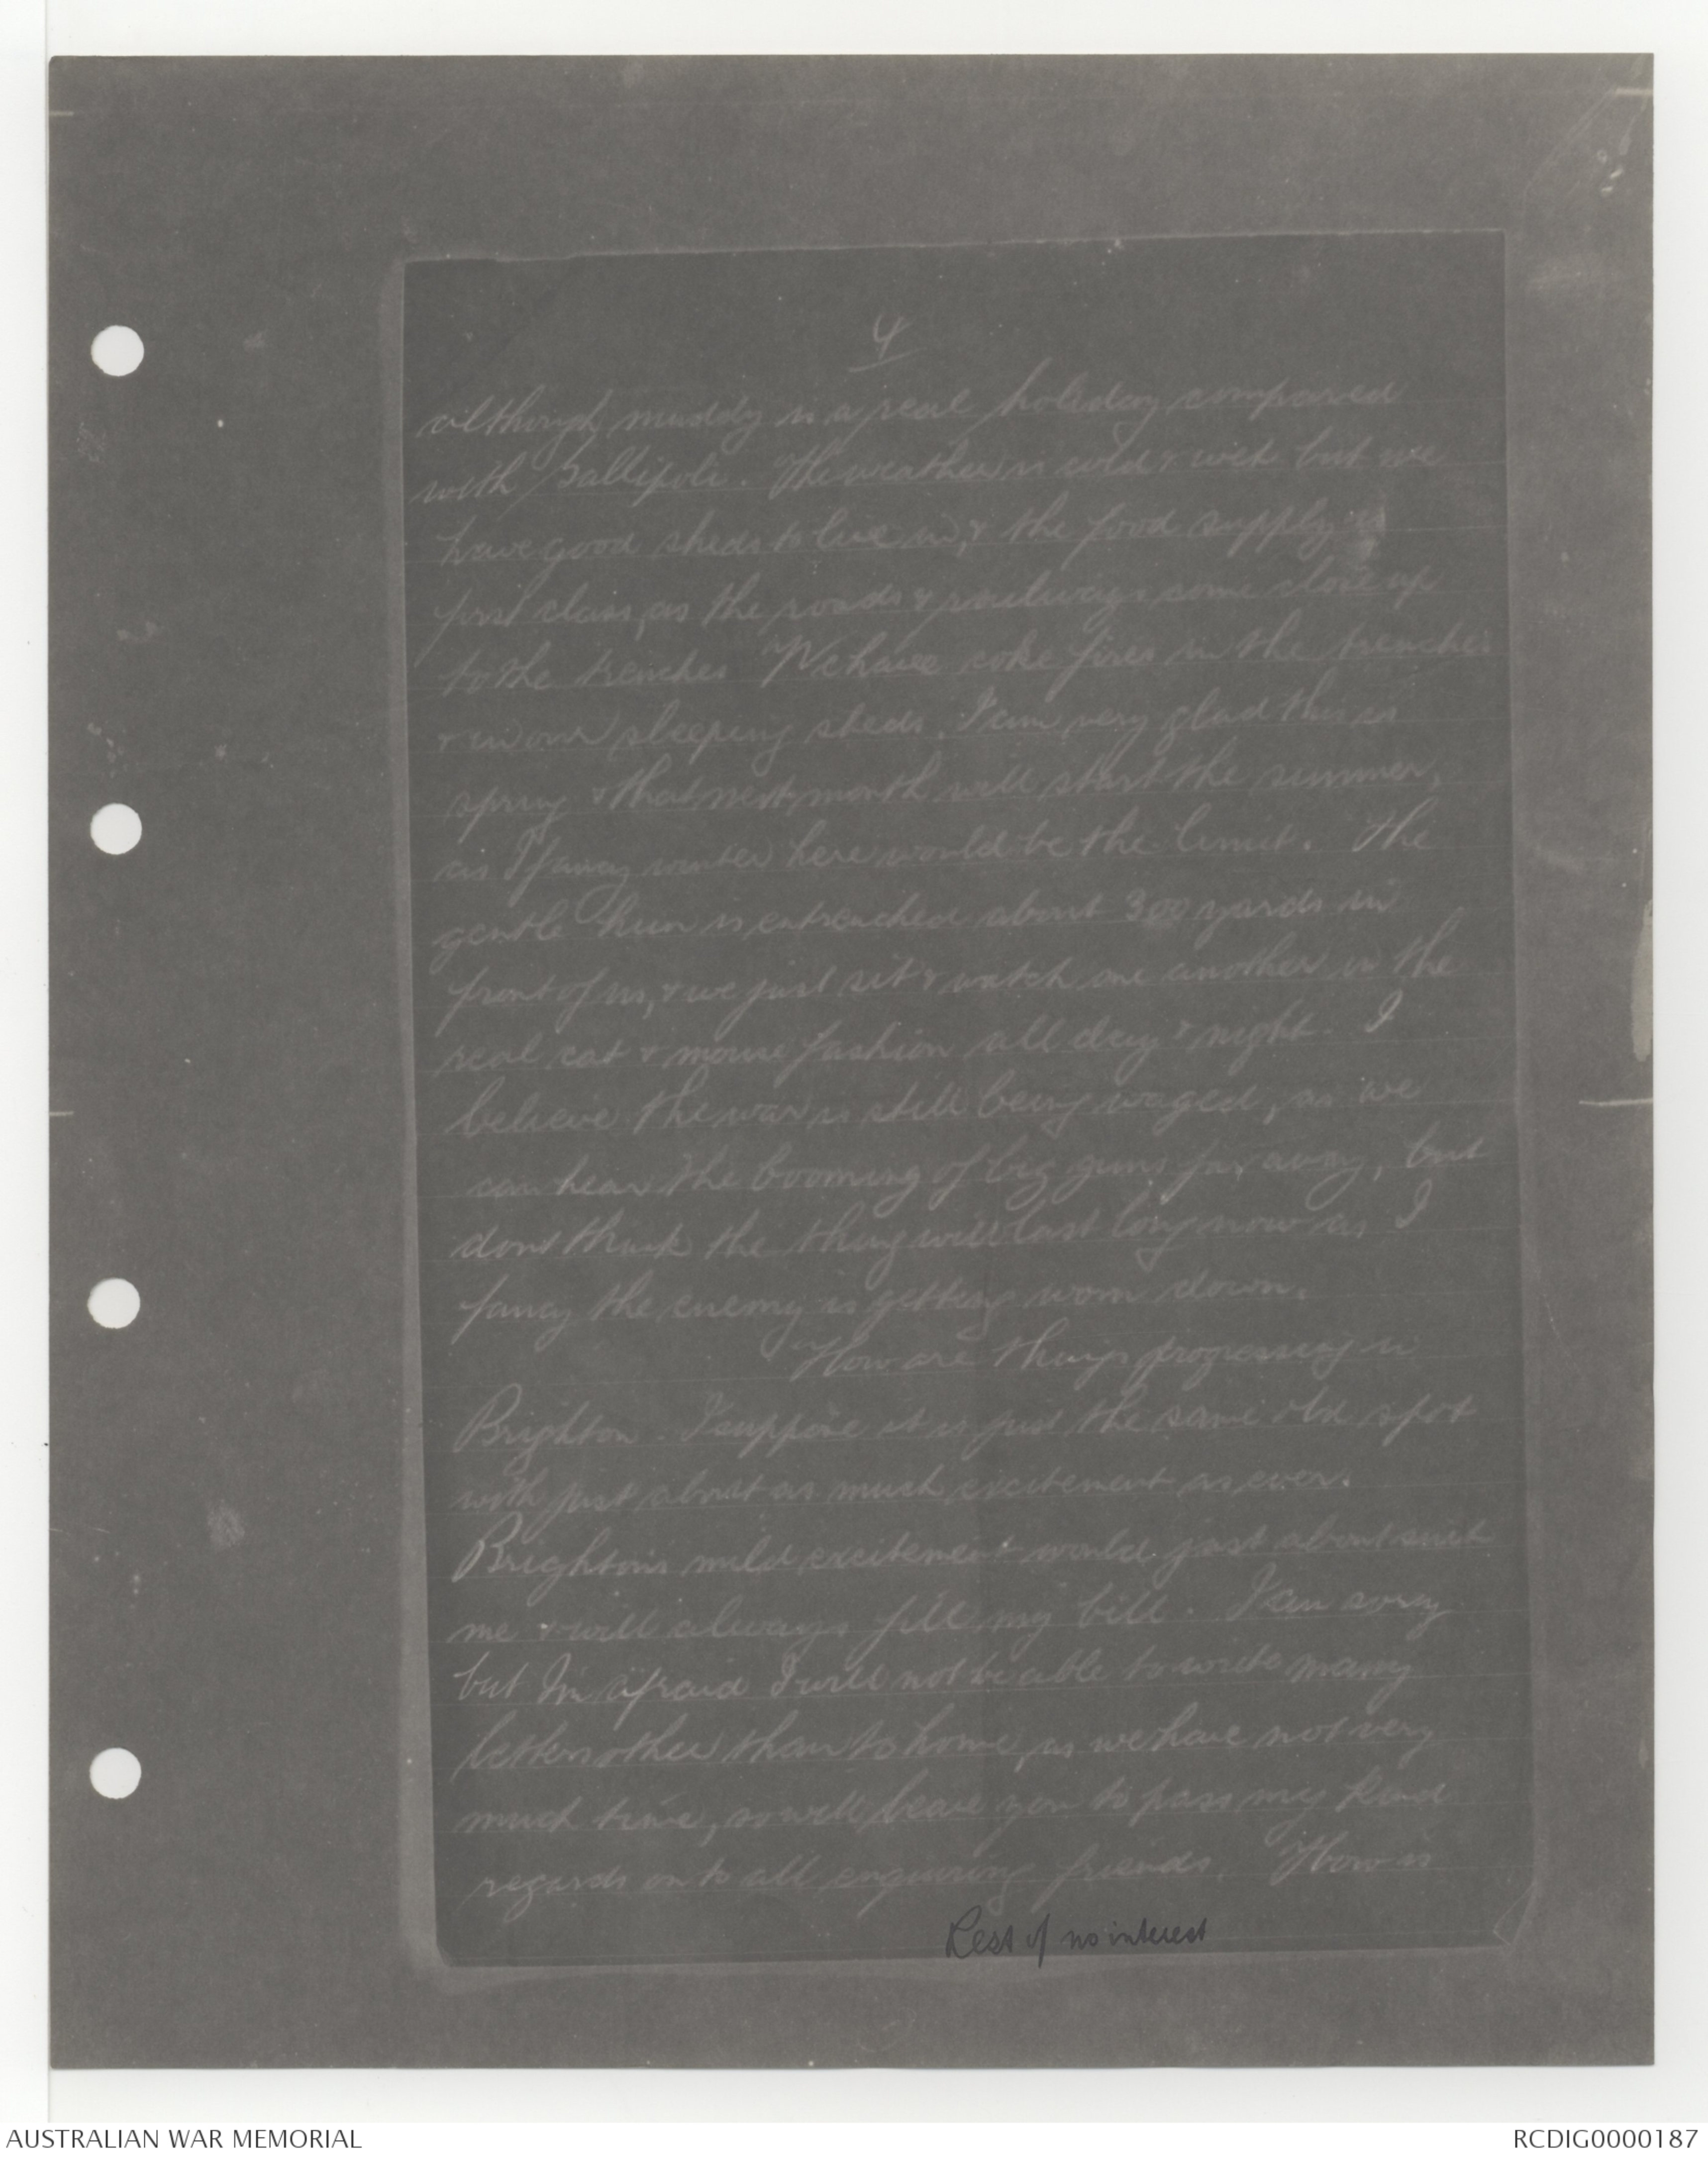 4
although muddy is a real holiday compared
with Gallipoli. The weather is cold & wet but we
have good sheds to live in, & the food supply is
first class, as the roads & railways come close up
to the trenches We have coke fires in the trenches
& in our sleeping sheds. I am very glad this is
spring & that next month will start the summer,
as I fancy winter here would be the limit. The
gentle hun is entrenched about 300 yards in
front of us, & we just sit & watch one another in the
real cat & mouse fashion all day & night. I
believe the war is still being waged, as we
can hear the booming of big guns far away, but
dont think the thing will last long now as I
fancy the enemy is getting worn down.
How are things progressing in
Brighton. I suppose it is just the same old spot
with just about as much excitement as ever.
Brighton's mild excitement would just about suit
me & will always fill my bill. I am sorry
but Im afraid I will not be able to write many
letters other than to home, as we have not very
much time, so will leave you to pass my kind
regards on to all enquiring friends. How is
Rest of no interest
AUSTRALIAN WAR MEMORIAL
RCDIG0000187